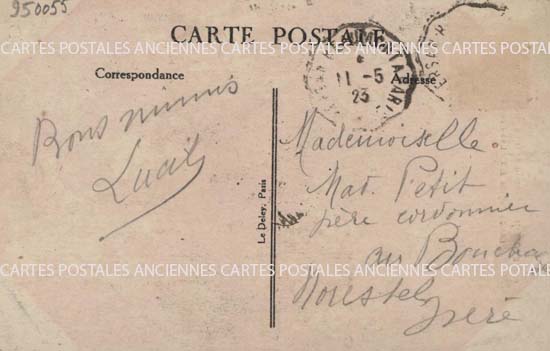 950055
CARTE POSTALE
Correspondance
Adresse
11-5
23
Bons mimis
Lucie
Mademoiselle
Mad. Petit
père cordonnier
au Bouchag
Morestel
Isère
Le Deley, Paris
CARTES POSTALES ANCIENNES CARTES POSTALES ANCIENNES CARTES POSTALES ANCIENNES
CARTES POSTALES ANCIENNES CARTES POSTALES ANCIENNES CARTES POSTALES ANCIENNES